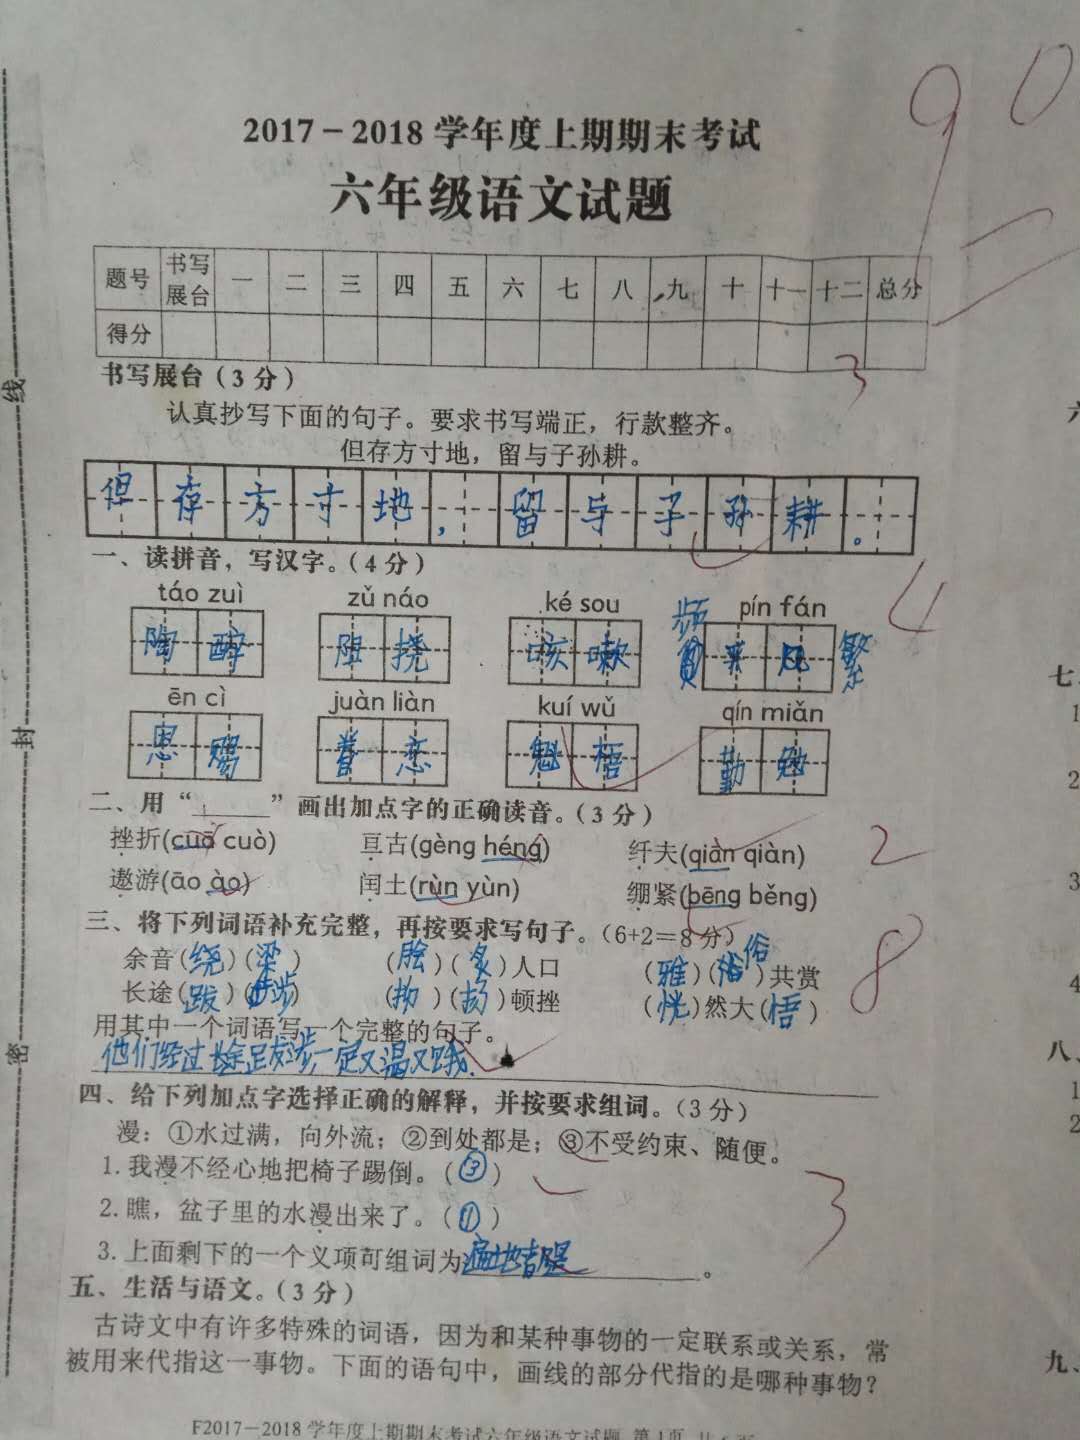 90
2017-2018学年度上期期末考试
六年级语文试题
题号 书写展台 一 二 三 四 五 六 七 八 九 十 十一 十二 总分
得分
3
书写展台(3分)
认真抄写下面的句子。要求书写端正，行款整齐。
但存方寸地，留与子孙耕。
但存方寸地，留与子孙耕。
一、读拼音，写汉字。(4分)
4
táo zuì zǔ náo ké sou pín fán
陶醉 阻挠 咳嗽 频 繁
ēn cì juàn liàn kuí wǔ qín miǎn
恩赐 眷恋 魁梧 勤勉
二、用“____”画出加点字的正确读音。(3分)
挫折(cuō cuò) 亘古(gèng héng) 纤夫(qiàn qiàn) 2
遨游(āo ào) 闰土(rùn yùn) 绷紧(bēng běng)
三、将下列词语补充完整，再按要求写句子。(6+2=8分)
余音(绕)(梁) (脍)(炙)人口 (雅)(俗)共赏 8
长途(跋)(涉) (抑)(扬)顿挫 (恍)然大(悟)
用其中一个词语写一个完整的句子。
他们经过长途跋涉一定又温又饿.
四、给下列加点字选择正确的解释，并按要求组词。(3分)
漫：①水过满，向外流；②到处都是；③不受约束、随便。
1.我漫不经心地把椅子踢倒。(③)
2.瞧，盆子里的水漫出来了。(①) 3
3.上面剩下的一个义项可组词为遍地都是。
五、生活与语文。(3分)
古诗文中有许多特殊的词语，因为和某种事物的一定联系或关系，常
被用来代指这一事物。下面的语句中，画线的部分代指的是哪种事物？
F2017-2018学年度上期期末考试六年级语文试题 第1页
线
封
密
六
七、
1
2
3
4
八、
1
2
九、